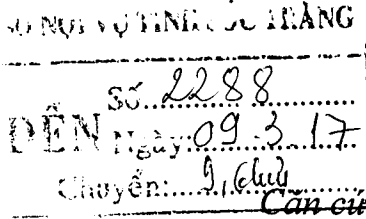 SỞ NỘI VỤ TỈNH SÓC TRĂNG
Số: 2288
ĐẾN Ngày: 09.3.17
Chuyển:
Căn cứ